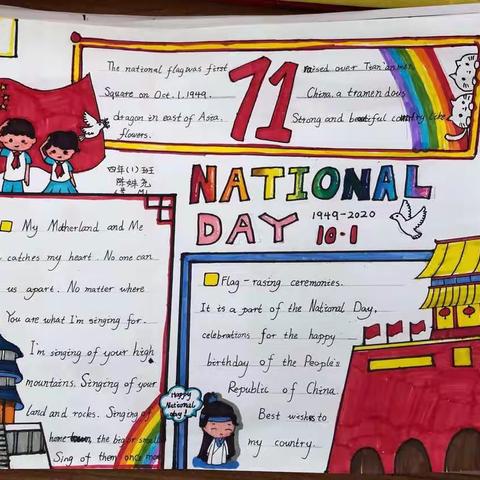 The national flag was first
Square on Oct. 1, 1949.
dragon in east of Asia.
flowers.
71
raised over Tian'anmen
China, a tramendous
Strong and beautiful country like
四年(1)班
NATIONAL
DAY
1949-2020
10·1
My Motherland and Me
catches my heart. No one can
us apart. No matter where
You are what I'm singing for.
I'm singing of your high
mountains. Singing of your
land and rocks. Singing of
home the big or small
Sing of them once mo
Flag-rasing ceremonies.
It is a part of the National Day,
celebrations for the happy
birthday of the People's
Republic of China.
Best wishes to
my country.
Happy
National
day!